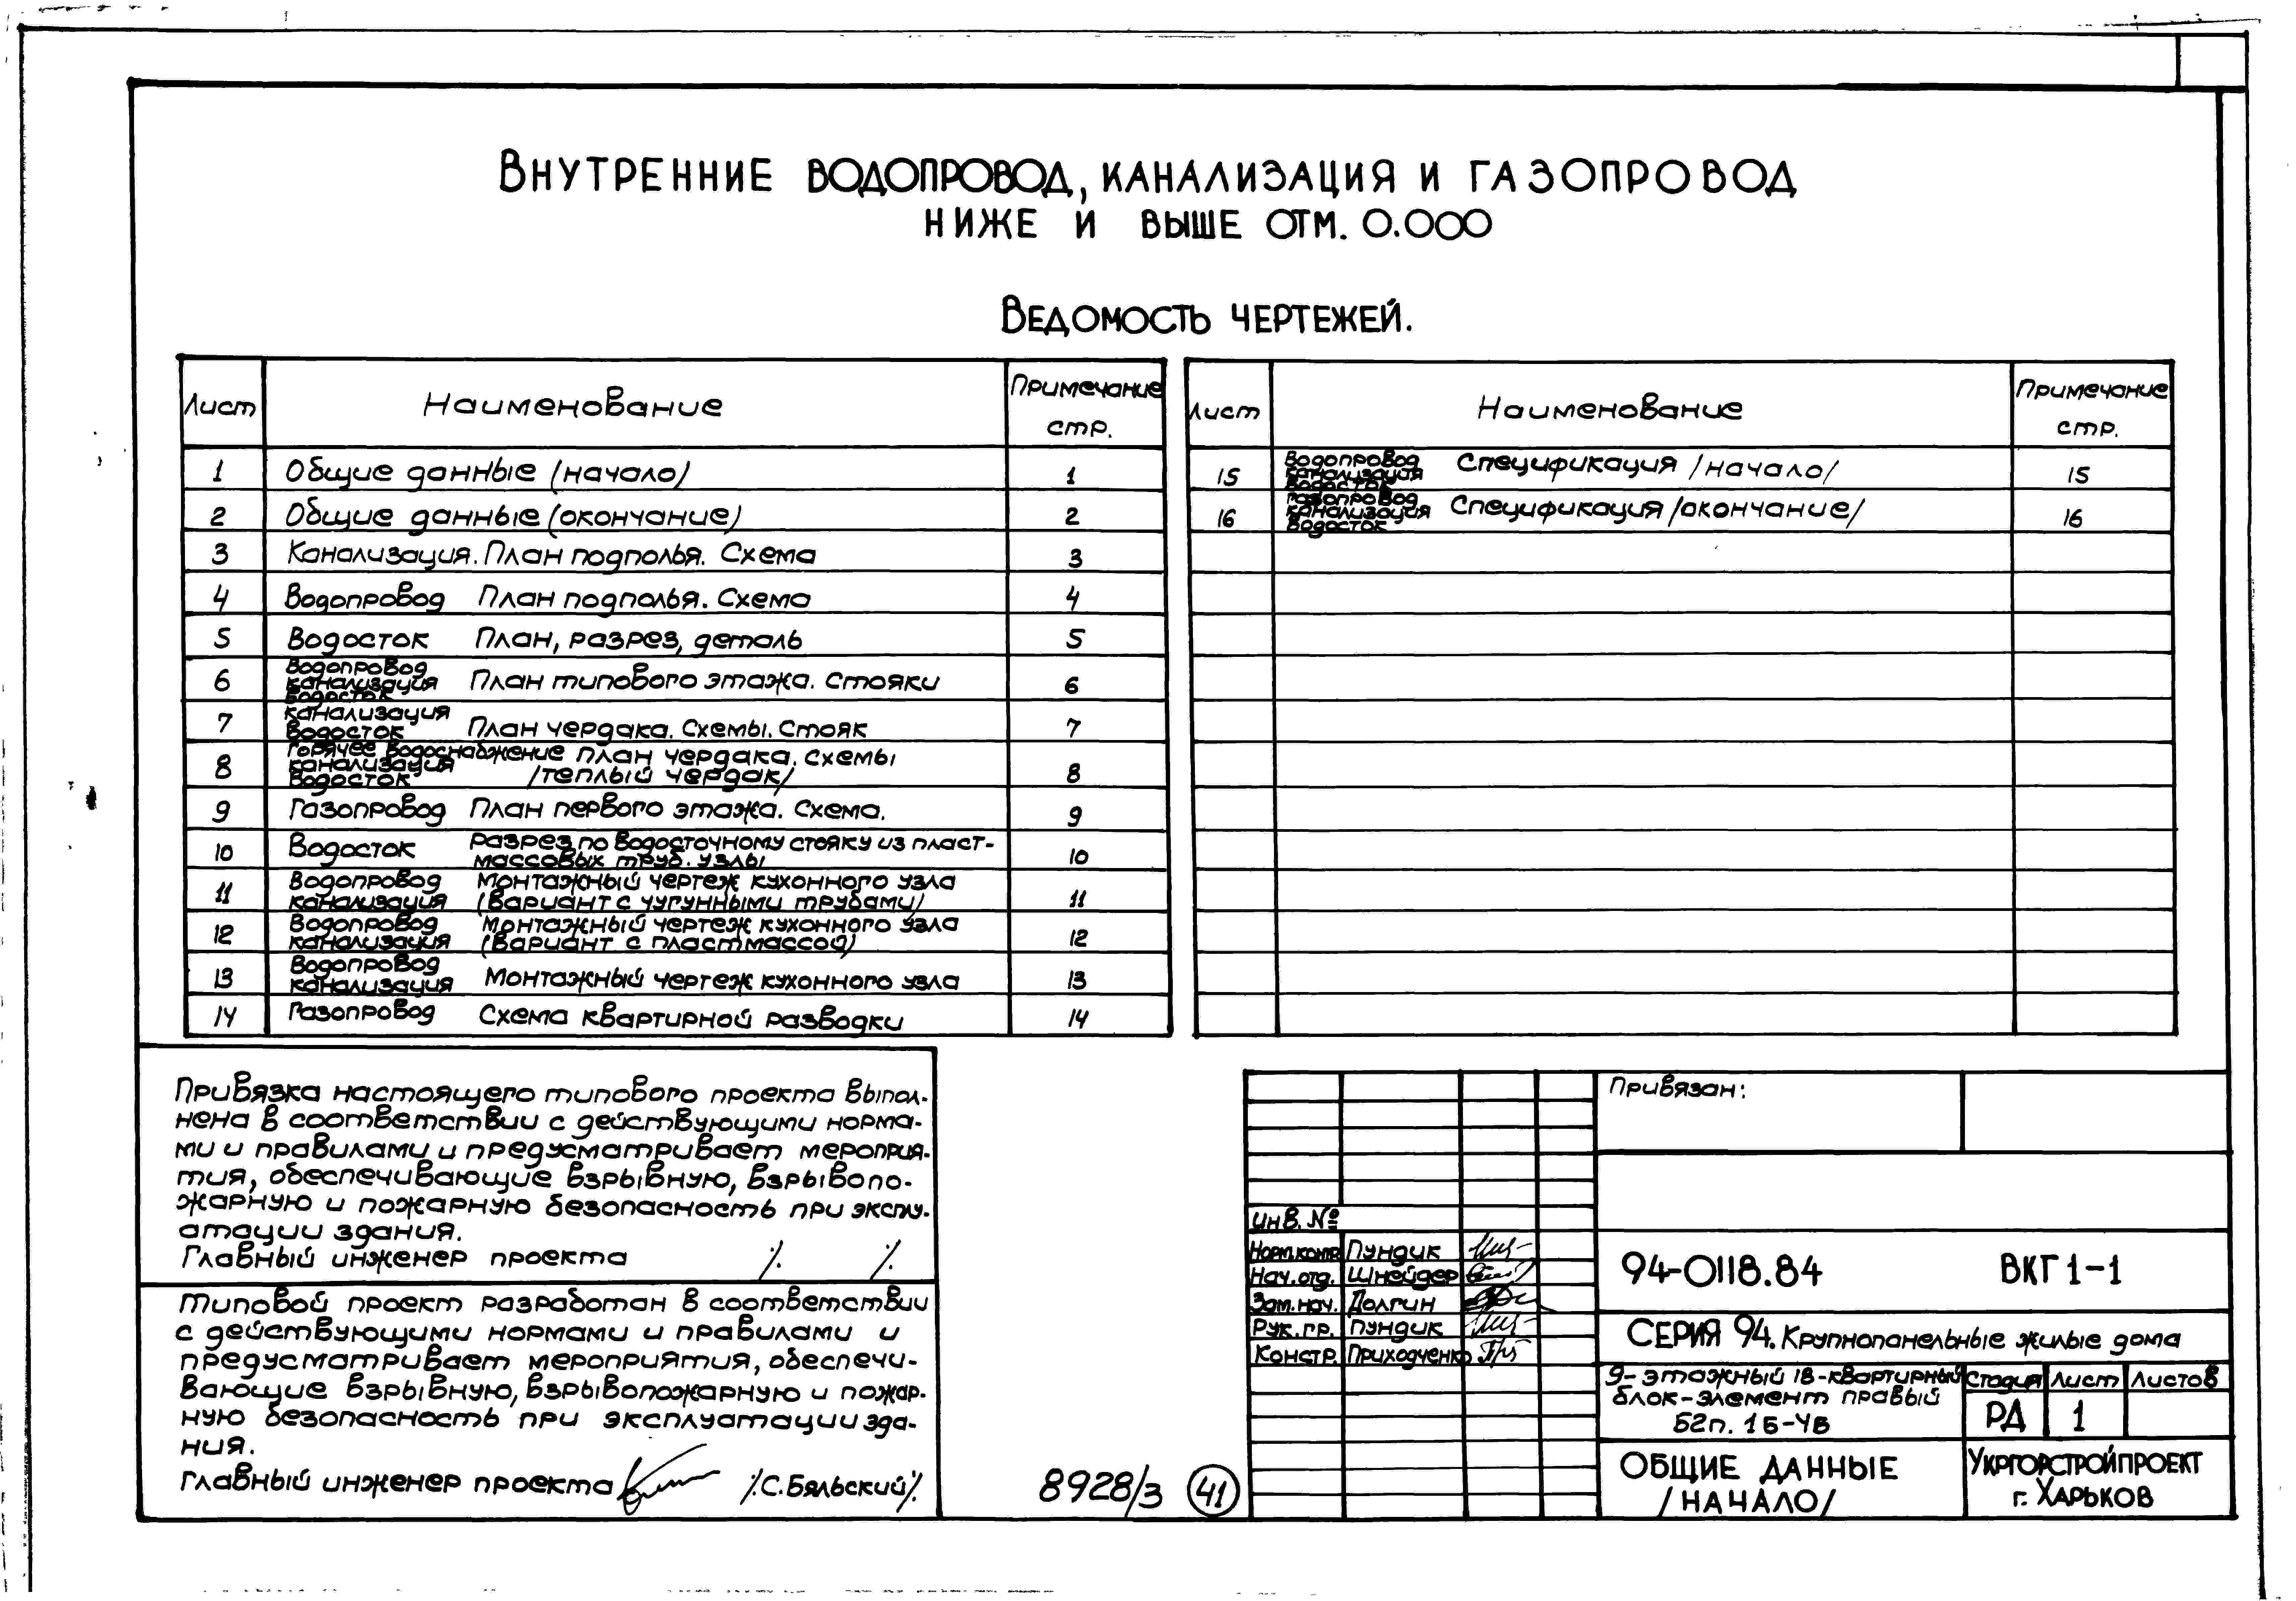 Внутренние водопровод, канализация и газопровод
ниже и выше отм. 0.000
Ведомость чертежей.
Лист Наименование Примечание стр.
1 Общие данные (начало) 1
2 Общие данные (окончание) 2
3 Канализация. План подполья. Схема 3
4 Водопровод План подполья. Схема 4
5 Водосток План, разрез, деталь 5
6 Водопровод канализация водосток План типового этажа. Стояки 6
7 канализация водосток План чердака. Схемы. Стояк 7
8 Горячее водоснабжение канализация водосток План чердака. схемы /теплый чердак/ 8
9 Газопровод План первого этажа. Схема. 9
10 Водосток Разрез по водосточному стояку из пласт-
массовых труб. узлы 10
11 Водопровод канализация Монтажный чертеж кухонного узла
(вариант с чугунными трубами) 11
12 Водопровод канализация Монтажный чертеж кухонного узла
(вариант с пластмассой) 12
13 Водопровод канализация Монтажный чертеж кухонного узла 13
14 Газопровод Схема квартирной разводки 14
Лист Наименование Примечание стр.
15 Водопровод канализация водосток Спецификация /начало/ 15
16 Газопровод канализация водосток Спецификация /окончание/ 16
Привязка настоящего типового проекта выпол-
нена в соответствии с действующими норма-
ми и правилами и предусматривает мероприя-
тия, обеспечивающие взрывную, взрывопо-
жарную и пожарную безопасность при эксплу-
атации здания.
Главный инженер проекта /. /.
Типовой проект разработан в соответствии
с действующими нормами и правилами и
предусматривает мероприятия, обеспечи-
вающие взрывную, взрывопожарную и пожар-
ную безопасность при эксплуатации зда-
ния.
Главный инженер проекта /.С. Бяльский/.
8928/3 41
Привязан:
инв. №
Норм.контр. Пундик
Нач.отд. Шнейдер
Зам.нач. Долгин
Рук.гр. Пундик
Констр. Приходченко
94-0118.84 ВКГ 1-1
Серия 94. Крупнопанельные жилые дома
9-этажный 18-квартирный
блок-элемент правый
Б2п. 1Б-4В
Стадия Лист Листов
РД 1
Общие данные
/начало/
Укргорстройпроект
г. Харьков